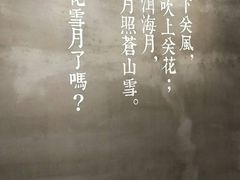 下关風，
吹上关花；
洱海月，
月照蒼山雪。
花雪月了嗎？